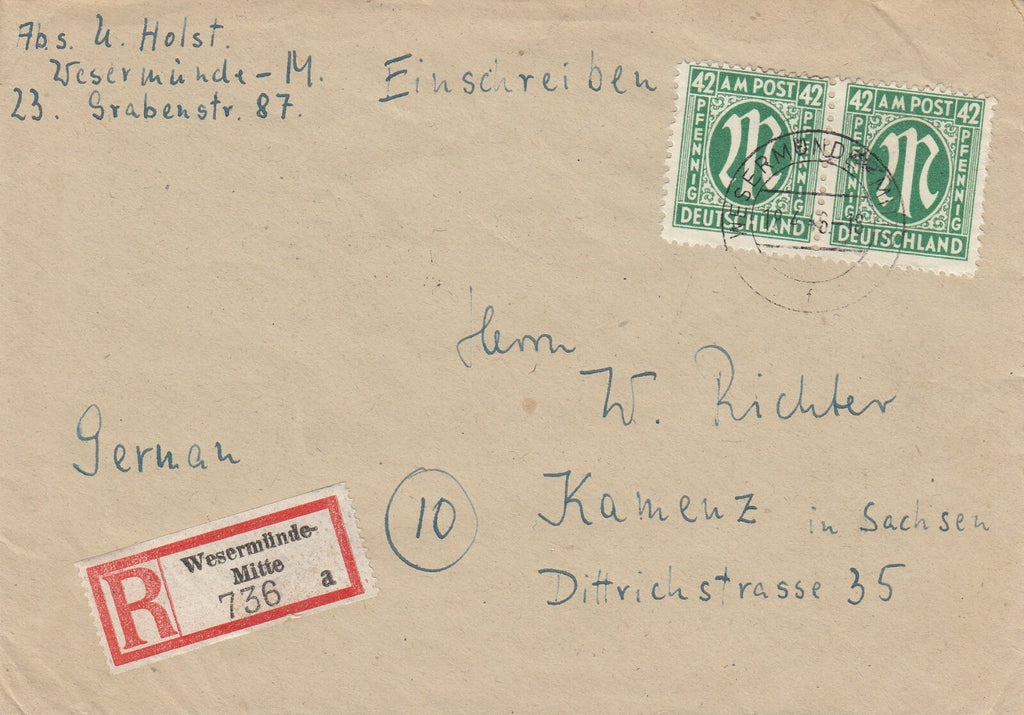 Abs. U. Holst.
Wesermünde-M.
23. Grabenstr. 87.
Einschreiben
42 AM POST 42
PFENNIG
PFENNIG
DEUTSCHLAND
42 AM POST 42
PFENNIG
PFENNIG
DEUTSCHLAND
WESERMÜNDE
f
Herrn
W. Richter
German
10
Kamenz in Sachsen
Dittrichstrasse 35
R
Wesermünde-
Mitte
736 a